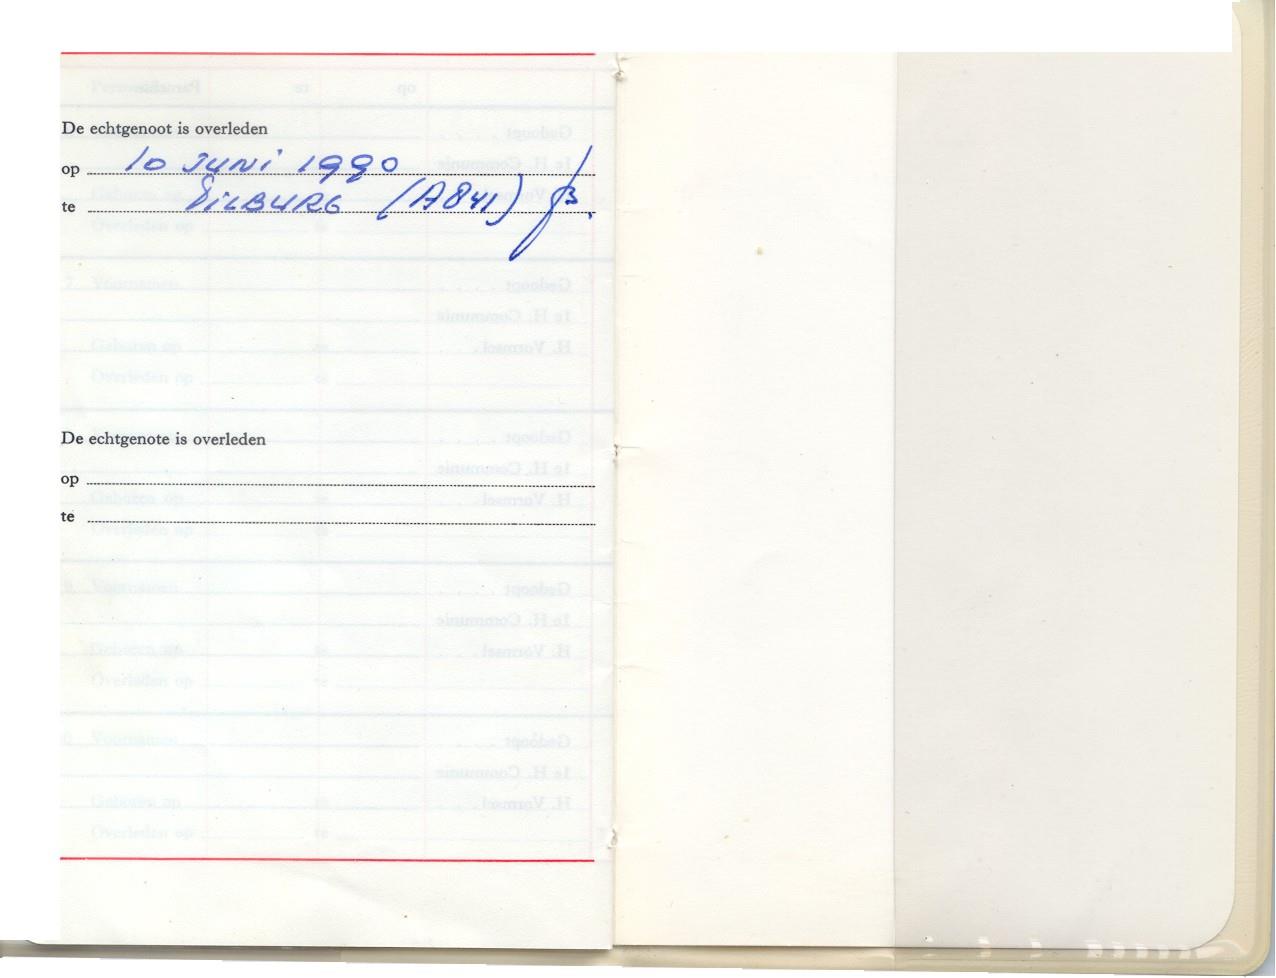 De echtgenoot is overleden
op 10 JUNI 1990
te TILBURG (A841)
De echtgenote is overleden
op
te